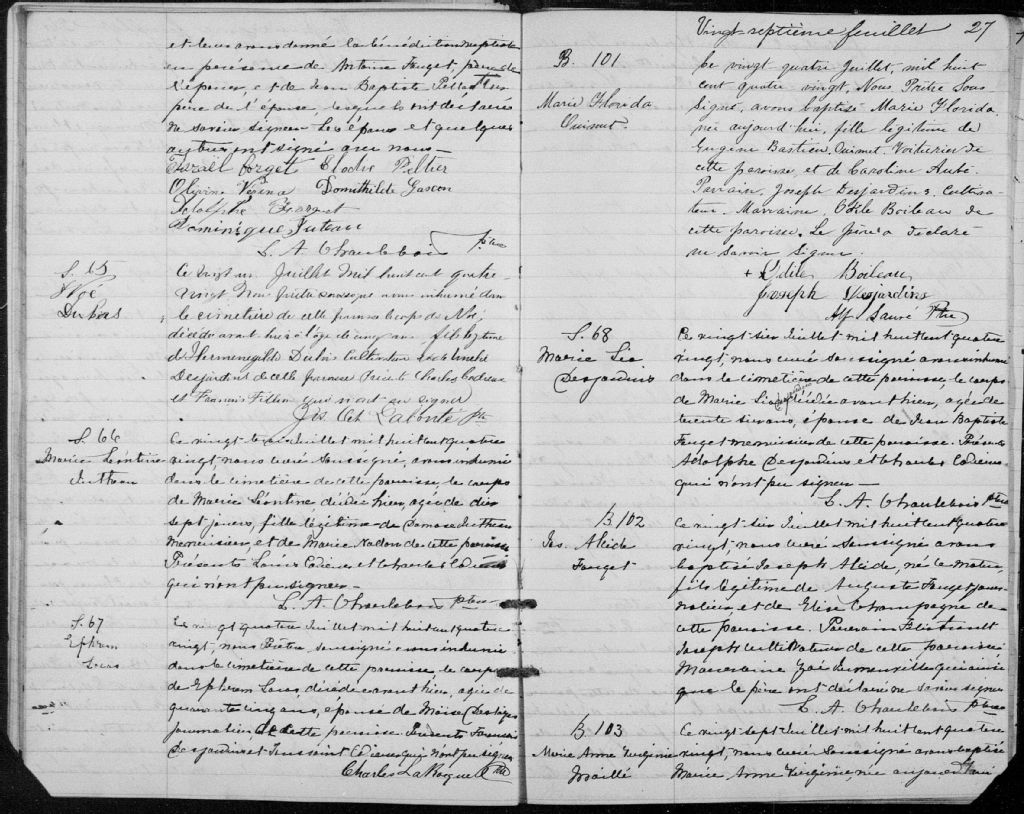 et leur avons donné la bénédiction nuptiale
en présence de Antoine Forget, père de
l'époux, et de Jean Baptiste Pelletier
père de l'épouse, lesquels ont déclaré
ne savoir signer. Les époux et quelques
autres ont signé avec nous —
Israël Forget Elodie Peltier
Olivina Vezina Domithilde Gascon
Adolphe Forget
Dominique Juteau
L. A. Charlebois Ptre
S. 65
Noé
Dubois
Ce vingt un Juillet mil huit cent quatre-
vingt Nous prêtre soussigné avons inhumé dans
le cimetière de cette paroisse le corps de Noé,
décédé avant hier à l'age de cinq ans fils légitime
d'Hermenegilde Dubois Cultivateur et de
Desjardins de cette paroisse Présents Charles Cadieux
et Francois Filion qui n'ont su signer
Lalonté Ptre
S. 66
Marie Léontine
Ce vingt trois Juillet mil huit cent quatre
vingt, nous curé soussigné, avons inhumé
dans le cimetière de cette paroisse, le corps
de Marie Léontine décédée hier, agée de dix
sept jours, fille légitime de Damase
menuisier, et de Marie Nadon de cette paroisse
Présents Louis Cadieux et Charles Cadieux
qui n'ont pu signer —
L. A. Charlebois Ptre
S. 67
Ephrem
Ce vingt quatre Juillet mil huit cent quatre
vingt, nous Prêtre, soussigné avons inhumé
dans le cimetière de cette paroisse, le corps
de Ephrem décédé avant hier, agée de
quarante cinq ans, épouse de Moïse
journalier de cette paroisse Présents Francois
Desjardins et Toussaint Cadieux qui n'ont pu signer
Charles LaRocque Ptre
Vingt septième feuillet 27
B. 101
Marie Florida
Ouimet.
Le vingt quatre Juillet, mil huit
cent quatre vingt, Nous Prêtre Sous
signé, avons baptisé Marie Florida
née aujourd'hui, fille légitime de
Eugène Bastien Ouimet, Voiturier de
cette paroisse, et de Caroline Aubé.
Parrain, Joseph Desjardins, Cultiva-
teur. Marraine, Odile Boileau de
cette paroisse. Le père a déclaré
ne savoir signer
+ Odile Boileau
Joseph Desjardins
Alf Sauvé Ptre
S. 68
Marie Lia
Desjardins
Ce vingt six Juillet mil huit cent quatre
vingt, nous curé soussigné avons inhumé
dans le cimetière de cette paroisse le corps
de Marie Lia Desjardins décédée avant hier, agée de
trente six ans, épouse de Jean Baptiste
Forget menuisier de cette paroisse. Présents
Adolphe Desjardins et Charles Cadieux
qui n'ont pu signer —
L. A. Charlebois Ptre
B 102
Jos. Alcide
Forget
Ce vingt six Juillet mil huit cent quatre
vingt, nous curé soussigné avons
baptisé Joseph Alcide, né le matin,
fils légitime de Auguste Forget jour-
nalier et de Elise Champagne de
cette paroisse. Parrain
Joseph cultivateur de cette paroisse
Marraine Zoé qui ainsi
que le père ont déclaré ne savoir signer
L. A. Charlebois Ptre
B. 103
Marie Anne Virginie
Maillé
Ce vingt sept Juillet mil huit cent quatre
vingt, nous curé soussigné avons baptisé
Marie Anne Virginie, née aujourd'hui